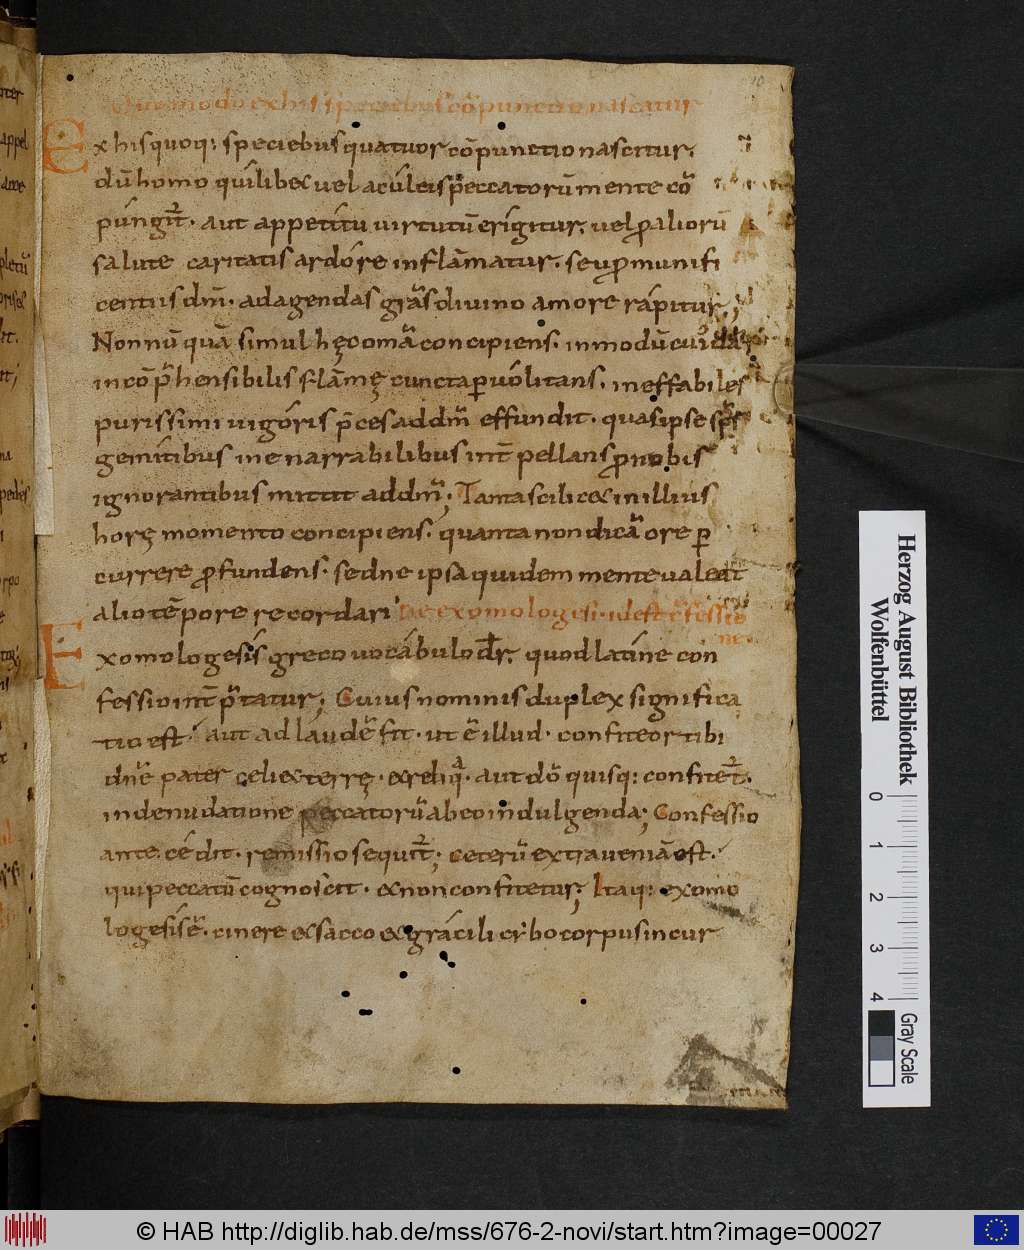 Quomodo ex his speciebus cōpunctio nascatur
Ex his quoq; speciebus quatuor cōpunctio nascitur.
dū homo quilibet vel aculeis peccatorū mente cō
pungit̄. aut appetitu virtutū erigitur. vel ꝓ aliorū
salute caritatis ardore inflāmatur. seu ꝓ munifi
centiis dn̄i. ad agendas grās divino amore rapitur;
Nonnūquā simul hęc om̄a concipiens. in modū cuiꝰdā
incōp̄hensibilis flāmę cuncta ꝑvolitans. ineffabiles
purissimi vigoris p̄ces ad dn̄m effundit. quas ipse sp̄s
gemitibus inenarrabilibus int̄pellans ꝓ nobis
ignorantibus mittit ad dn̄m; Tanta scilicet in illius
horę momento concipiens. quanta non dicā ore ꝑ
currere ꝓfundens. sed ne ipsa quidem mente valeat
alio tēpore recordari De exomologesi. id est cōfessio
ne.
Exomologesis greco vocabulo dr̄. quod latine con
fessio int̄p̄tatur; Cuius nominis duplex significa
tio est. aut ad laudē fit. ut ē illud. confiteor tibi
dn̄e pater celi et terrę. et reliq̄. aut dū quisq; confitet̄.
in denudatione peccatorū ab eo indulgenda; Confessio
antecedit. remissio sequit̄; ceterū extra veniā est.
qui peccatū cognoscit. et non confitetur; Itaq; exomo
logesis ē. cinere et sacco et gracili cybo corpus incur
10
Herzog August Bibliothek
Wolfenbüttel
0 1 2 3 4
Gray Scale
© HAB http://diglib.hab.de/mss/676-2-novi/start.htm?image=00027